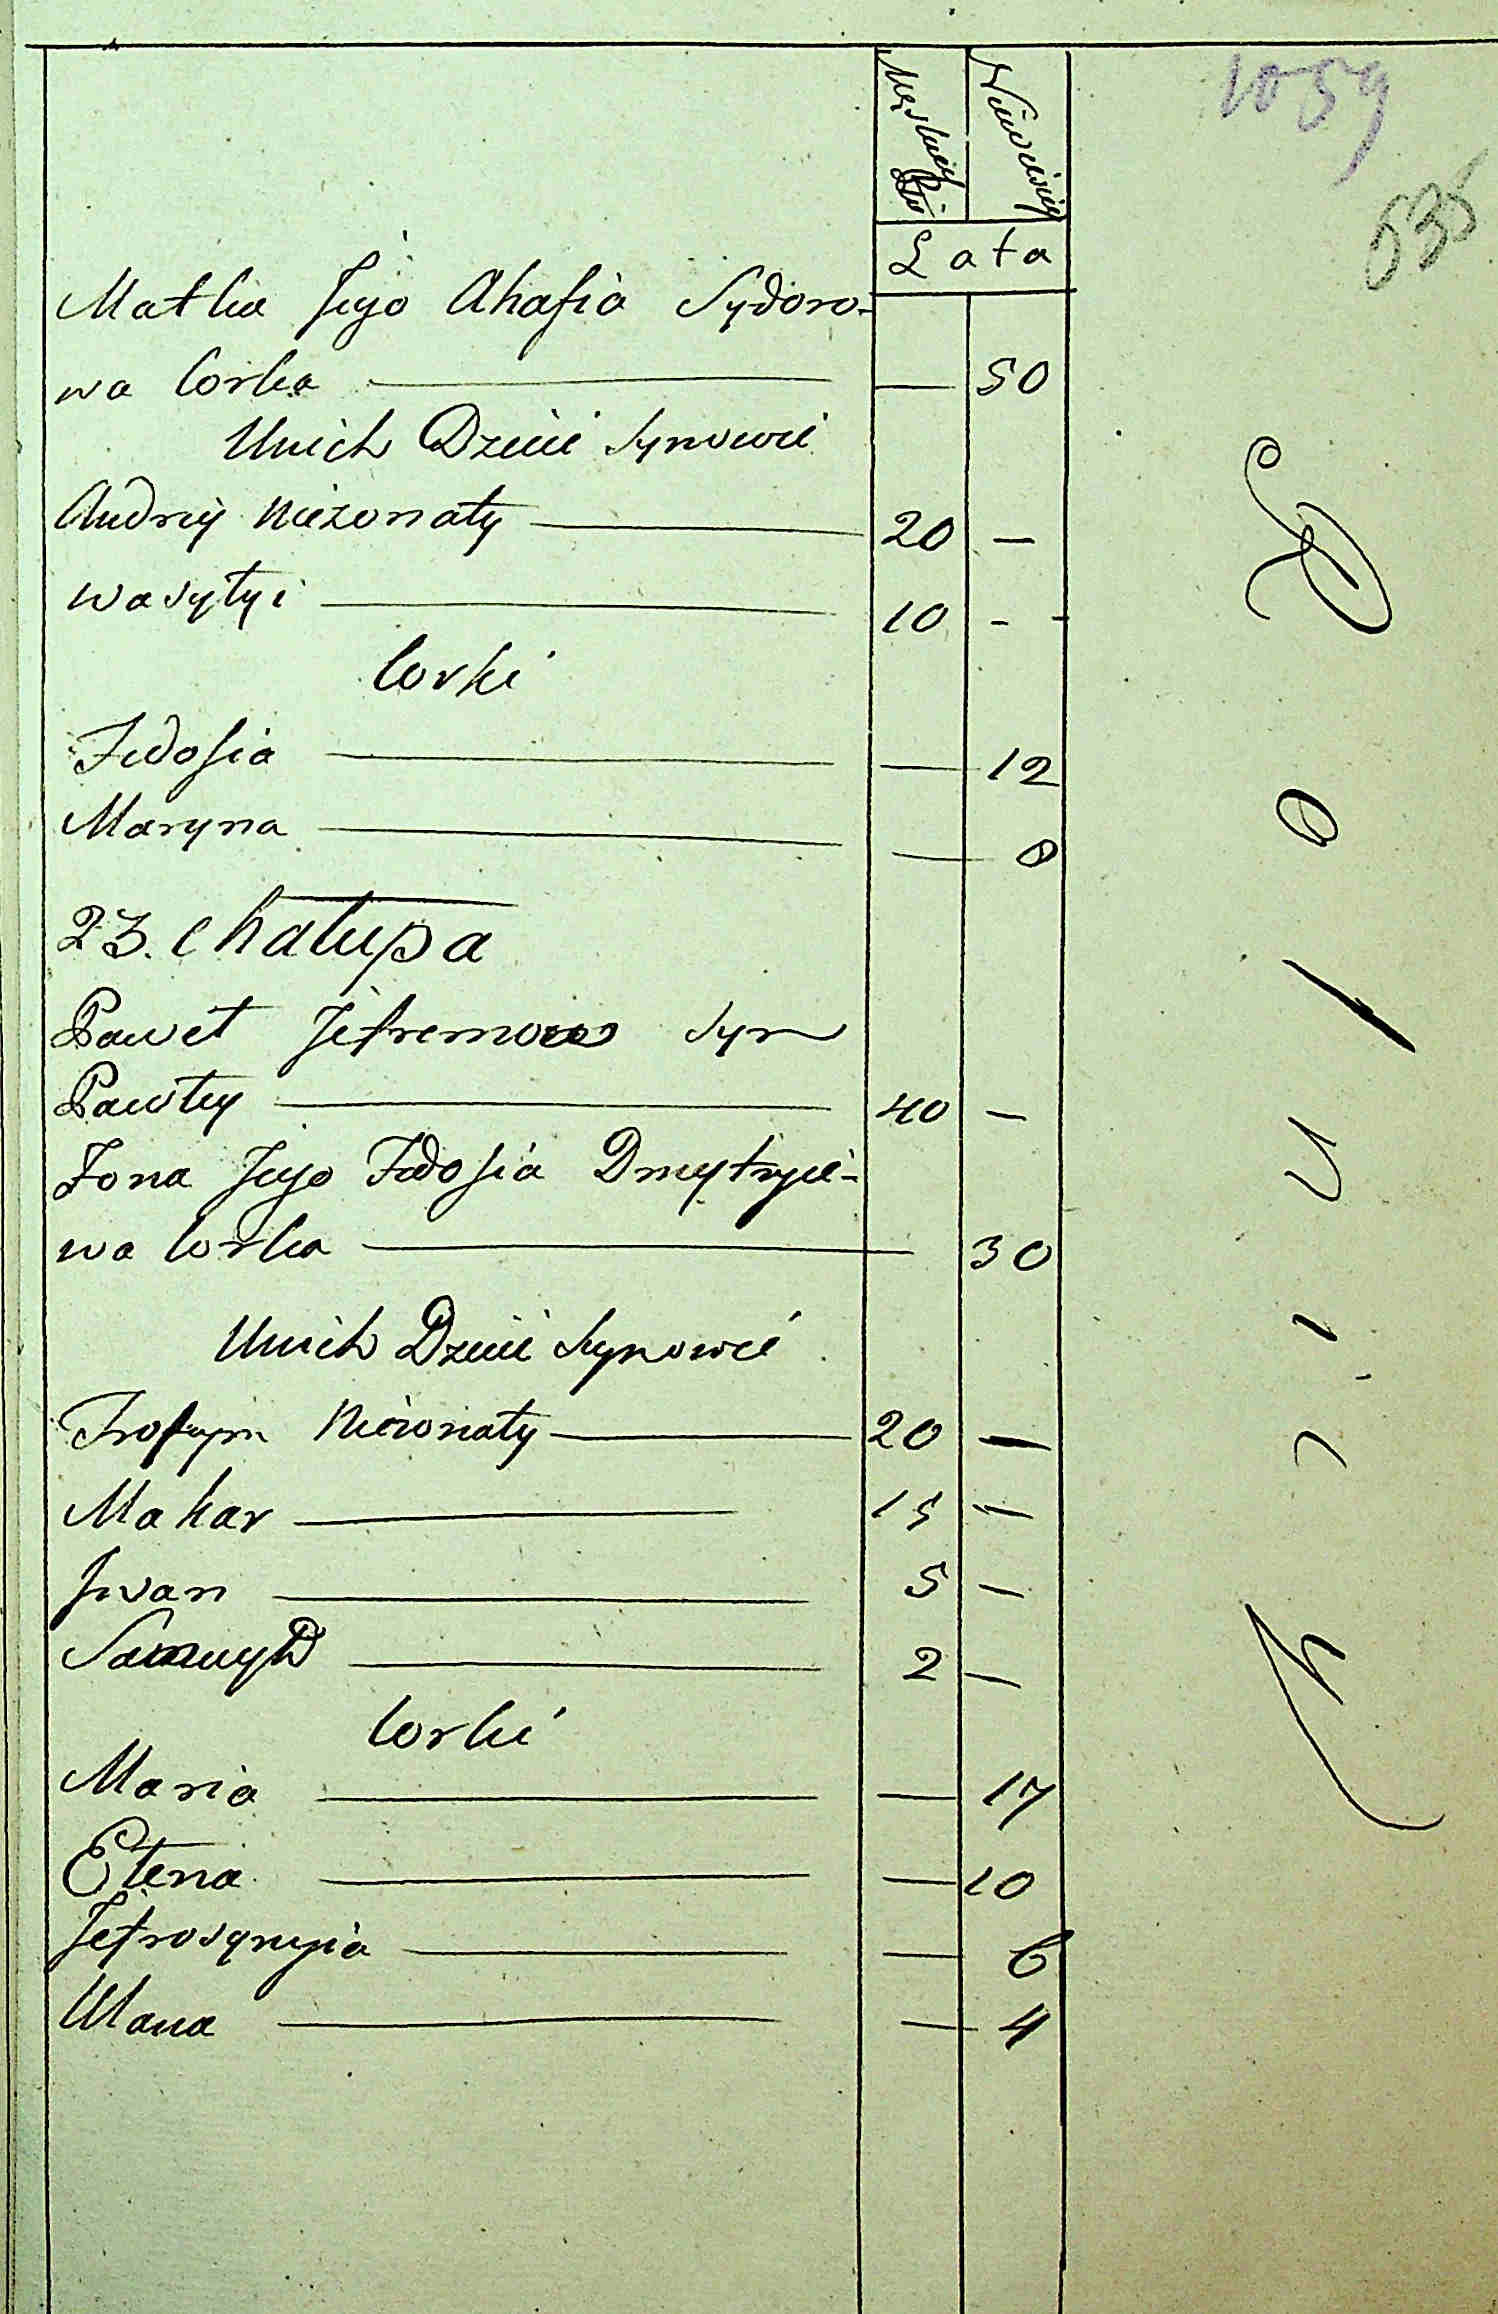 1059
535
Męskiej Płci
Niewieściej
Lata
Matka Jego Ahafia Sydoro-
wa Corka — — 50
Unich Dzieci Synowie
Andrej Nieżonaty — 20 —
Wasyłyi — 10 - -
Corki
Fedosia — — 12
Maryna — — 8
23. Chałupa
Paweł Jefremow Syn
Pawłey — 40 —
Żona Jego Fedosia Dmytryie-
wa Corka — 30
Unich Dzieci Synowie
Trofym Nieżonaty — 20 —
Makar — 15 —
Iwan — 5 —
— 2 —
Corki
Maria — — 17
Ełena — — 10
Jefrosynyia — — 6
Ulana — — 4